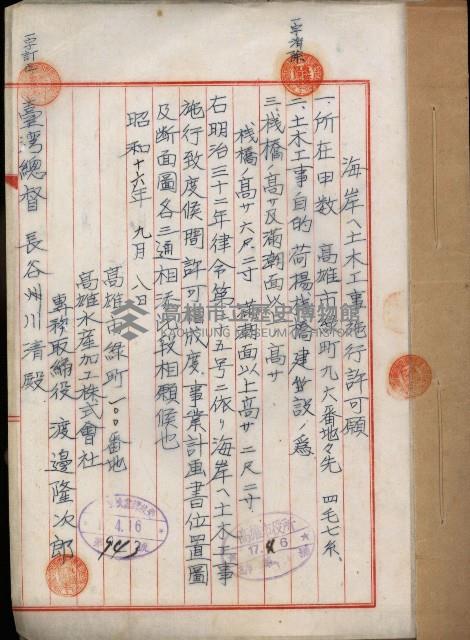 一字消除
海岸ヘ土木工事施行許可願
一、所在甲数 高雄市 町九六番地々先 四毛七糸、
二、土木工事ノ目的 荷揚棧橋建設ノ為
三、棧橋ノ高サ及滿潮面以上ノ高サ
棧橋ノ高サ六尺二寸 滿潮面以上高サ二尺二寸
右明治三十二年律令第 五号ニ依リ海岸ヘ土木工事
施行致度候間許可 成度、事業計画書位置圖
及断面圖各三通相添 段相願候也
昭和十六年九月八日
高雄市綠町一〇〇番地
高雄水産加工株式會社
專務取締役 渡邉隆次郎
臺灣總督 長谷川清殿
一字訂正
高雄市立歷史博物館
KAOHSIUNG MUSEUM OF HISTORY
4.16
943
高雄市役所
17.4.6
號